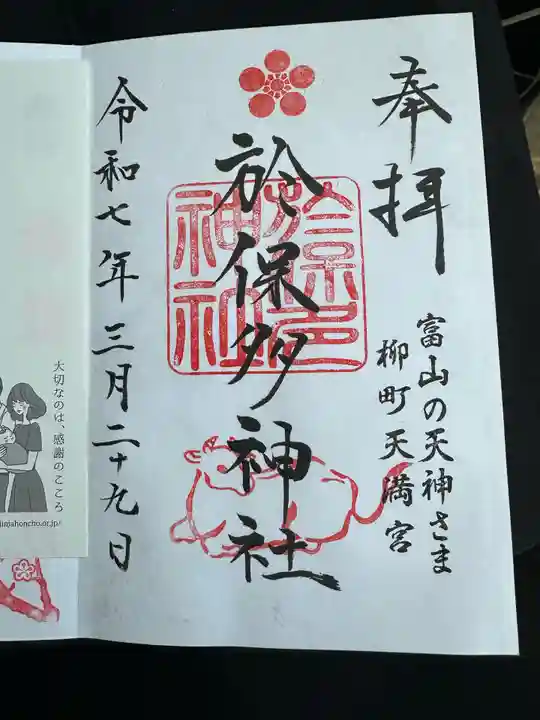 奉拝
富山の天神さま
柳町天満宮
於保多神社
於保多
神社
令和七年三月二十九日
大切なのは、感謝のこころ
jinjahoncho.or.jp/